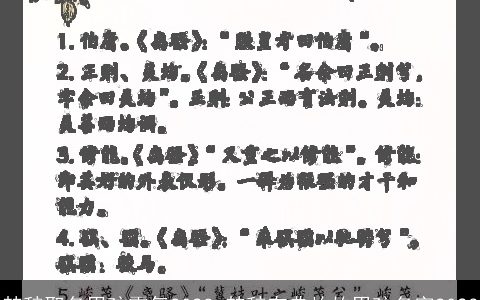 1. 伯庸。《离骚》：“朕皇考曰伯庸”。
2. 正则、灵均。《离骚》：“名余曰正则兮，
字余曰灵均”。正则：公正而有法则。灵均：
灵善而均调。
3. 修能。《离骚》“又重之以修能”。修能：
即美好的外表仪形。一释为很强的才干和
能力。
4. 骐、骥。《离骚》：“乘骐骥以驰骋兮”。
骐骥：骏马。
5. 峻茂《离骚》“冀枝叶之峻茂兮”峻茂